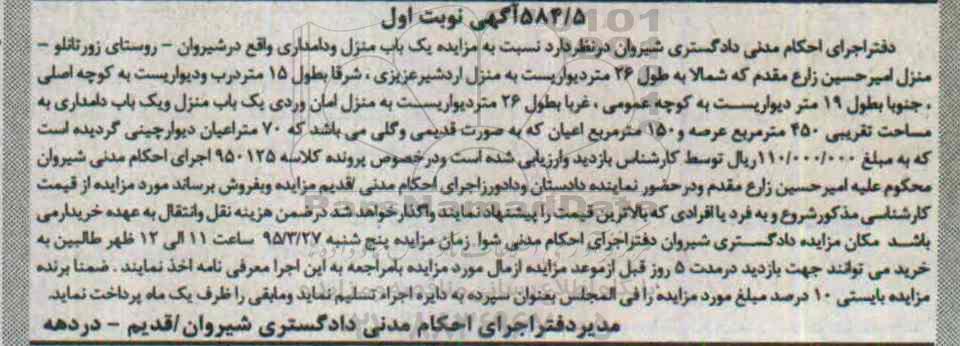 ۵۸۴/۵آگهی نوبت اول
دفتراجرای احکام مدنی دادگستری شیروان درنظردارد نسبت به مزایده یک باب منزل ودامداری واقع درشیروان - روستای زورتانلو -
منزل امیرحسین زارع مقدم که شمالا به طول ۲۶ متردیواریست به منزل اردشیرعزیزی ، شرقا بطول ۱۵ متردرب ودیواریست به کوچه اصلی
، جنوبا بطول ۱۹ متر دیواریست به کوچه عمومی ، غربا بطول ۲۶ متردیواریست به منزل امان وردی یک باب منزل ویک باب دامداری به
مساحت تقریبی ۴۵۰ مترمربع عرصه و۱۵۰ مترمربع اعیان که به صورت قدیمی وگلی می باشد که ۷۰ متراعیان دیوارچینی گردیده است
که به مبلغ ۱۱۰/۰۰۰/۰۰۰ریال توسط کارشناس بازدید وارزیابی شده است ودرخصوص پرونده کلاسه ۹۵۰۱۲۵ اجرای احکام مدنی شیروان
محکوم علیه امیرحسین زارع مقدم ودرحضور نماینده دادستان ودادورزاجرای احکام مدنی /قدیم مزایده وبفروش برساند مورد مزایده از قیمت
کارشناسی مذکورشروع و به فرد یا افرادی که بالاترین قیمت را پیشنهاد نمایند واگذارخواهد شد درضمن هزینه نقل وانتقال به عهده خریدارمی
باشد مکان مزایده دادگستری شیروان دفتراجرای احکام مدنی شوا زمان مزایده پنج شنبه ۹۵/۳/۲۷ ساعت ۱۱ الی ۱۲ ظهر طالبین به
خرید می توانند جهت بازدید درمدت ۵ روز قبل ازموعد مزایده ازمال مورد مزایده بامراجعه به این اجرا معرفی نامه اخذ نمایند . ضمنا برنده
مزایده بایستی ۱۰ درصد مبلغ مورد مزایده را فی المجلس بعنوان سپرده به دایره اجراء تسلیم نماید ومابقی را ظرف یک ماه پرداخت نماید.
مدیردفتراجرای احکام مدنی دادگستری شیروان/قدیم - دردهه
ParsNamadData